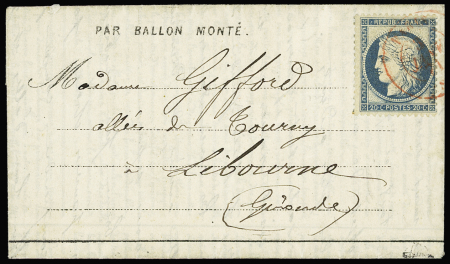 PAR BALLON MONTÉ.
REPUB. FRANC.
20 C POSTES 20 C
Madame Gifford
allées de Tourny
à Libourne
(Gironde)